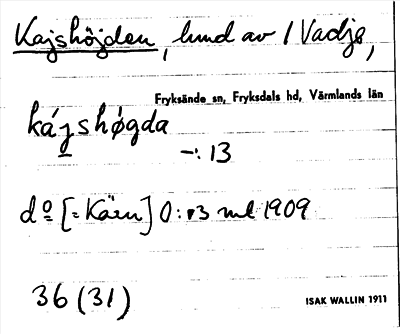 Kajshöjden, hmd av 1 Vadje,
Fryksände sn, Fryksdals hd, Värmlands län
ká̱jshø̀gda
-: 13
do̲ [= Käen] 0:13 ml 1909
36 (31)
ISAK WALLIN 1911